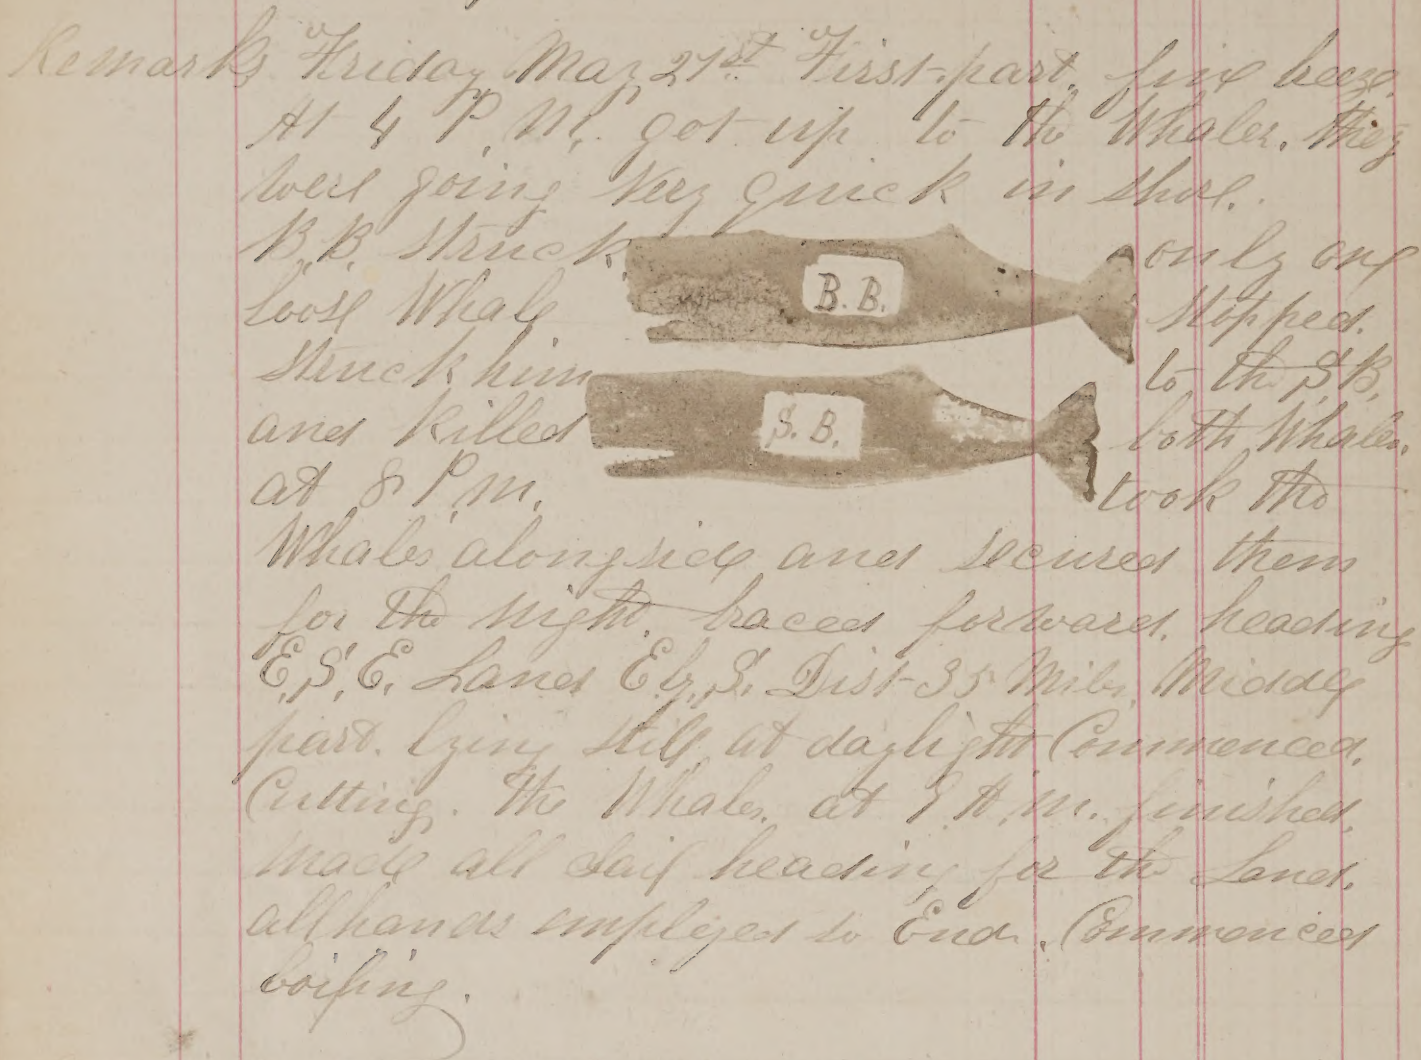 Remarks Friday May 21st First part. fine breeze.
At 4 P.M. got up to the Whales. they
were going very quick in shore.
B.B. struck B. B. only one
loose Whale stopped.
struck him to the S B,
and killed S. B. both Whales.
at 8 P.M. took the
Whales alongside and secured them
for the night. braced forward. heading
E.S.E. Land E by S. Dist 35 Miles Middle
part. lying still at daylight Commenced.
Cutting. the Whales. at 9 A.M. finished.
made all sail heading for the Land.
all hands employed so Ends. Commenced
boiling.